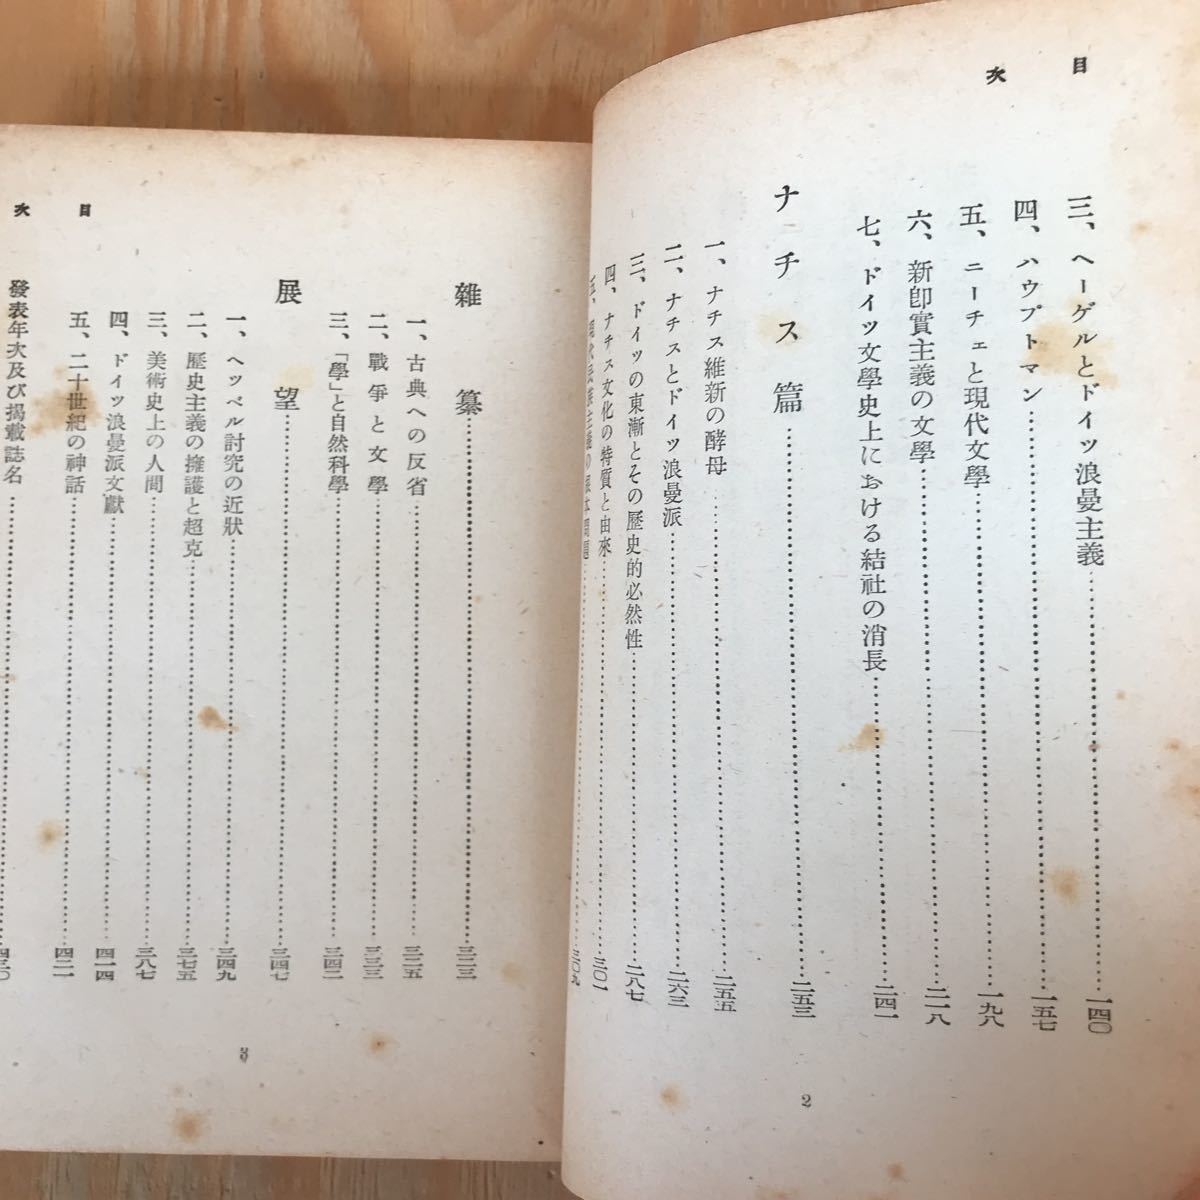 目次
三、ヘーゲルとドイツ浪曼主義……一四〇
四、ハウプトマン……一五七
五、ニーチェと現代文學……一九八
六、新卽實主義の文學……二一八
七、ドイツ文學史上における結社の消長……二四一
ナチス篇……二五三
一、ナチス維新の酵母……二五五
二、ナチスとドイツ浪曼派……二六三
三、ドイツの東漸とその歷史的必然性……二八七
四、ナチス文化の特質と由來……三〇一
五、現代民族主義の根本問題……三〇九
2
目次
雜纂……三二三
一、古典への反省……三二五
二、戰爭と文學……三三三
三、「學」と自然科學……三四二
展望……三四七
一、ヘッベル討究の近狀……三四九
二、歷史主義の擁護と超克……三七五
三、美術史上の人間……三八七
四、ドイツ浪曼派文獻……四一四
五、二十世紀の神話……四二一
發表年次及び揭載誌名……四三〇
3